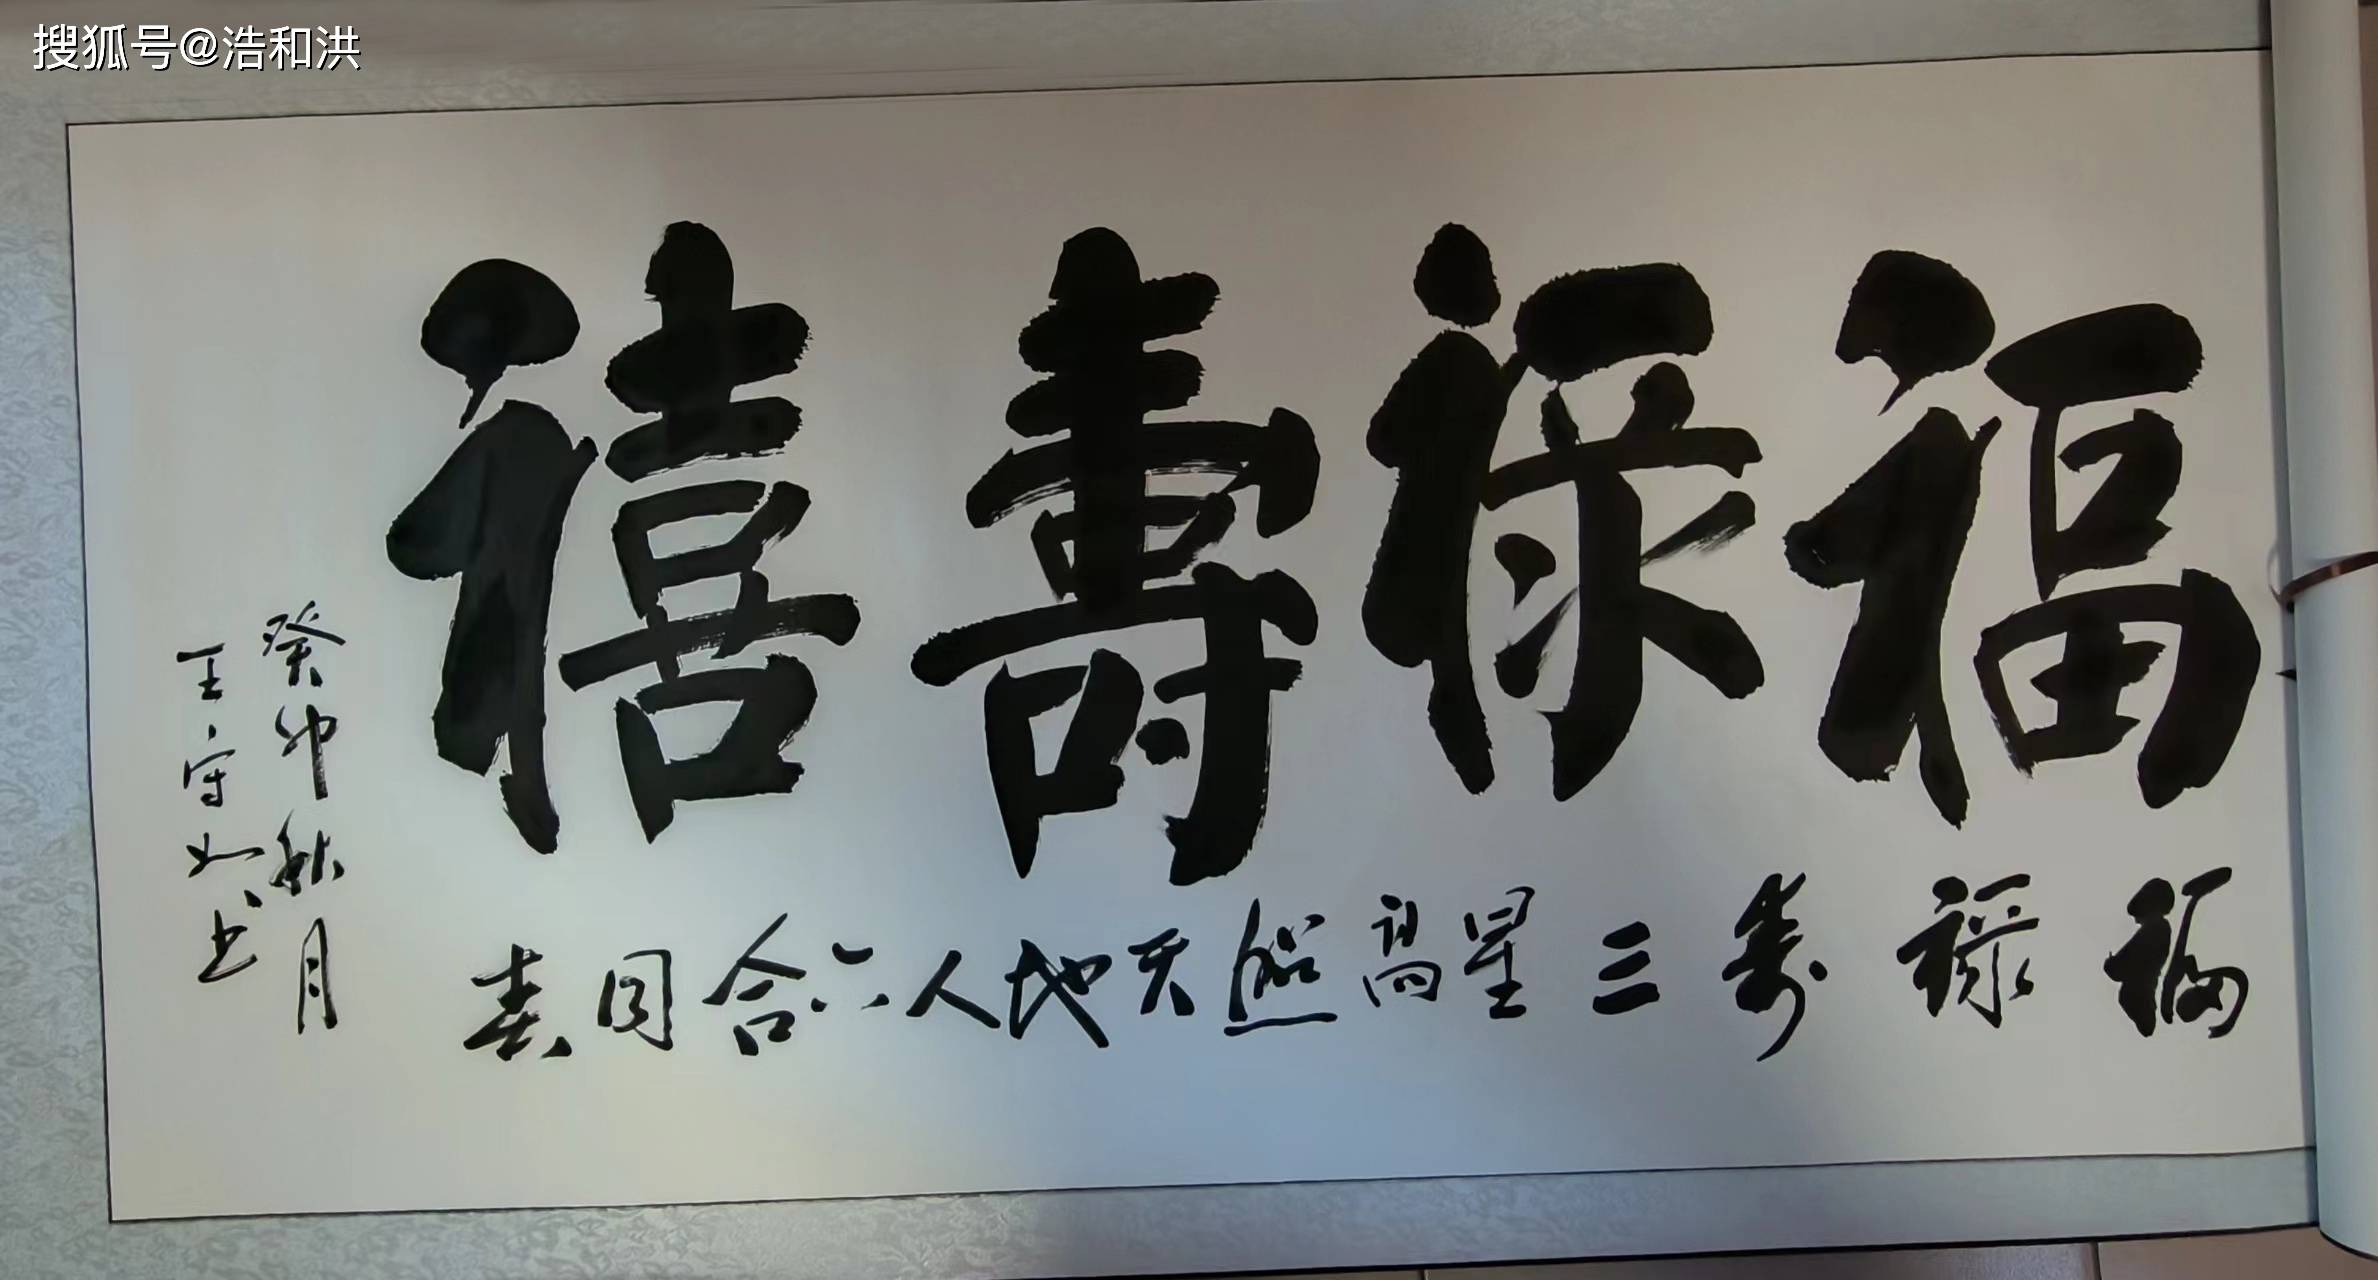 搜狐号@浩和洪
福禄壽禧
福禄寿三星高照天地人六合同春
癸卯秋月
王守如书